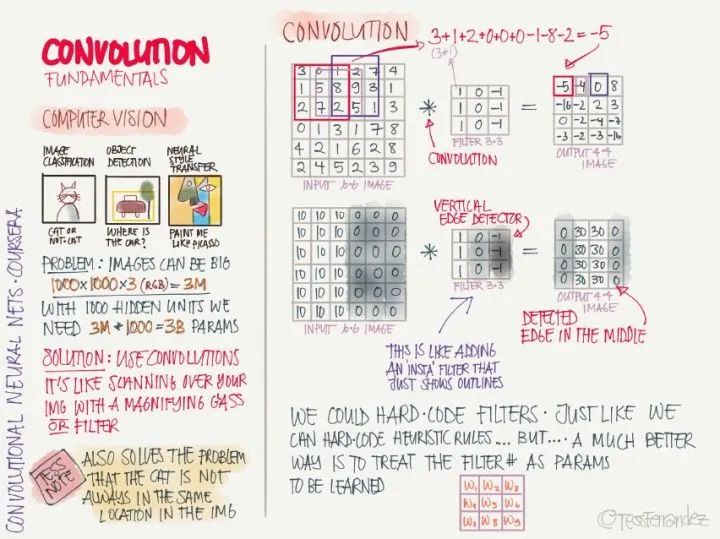 CONVOLUTIONAL NEURAL NETS · COURSERA
CONVOLUTION
FUNDAMENTALS
COMPUTER VISION
IMAGE
CLASSIFICATION
CAT OR
NOT-CAT
OBJECT
DETECTION
WHERE IS
THE CAR?
NEURAL
STYLE
TRANSFER
PAINT ME
LIKE PICASSO
PROBLEM: IMAGES CAN BE BIG
1000×1000×3 (RGB) = 3M
WITH 1000 HIDDEN UNITS WE
NEED 3M * 1000 = 3B PARAMS
SOLUTION: USE CONVOLUTIONS
IT'S LIKE SCANNING OVER YOUR
IMG WITH A MAGNIFYING GASS
OR FILTER
TESS
NOTE
ALSO SOLVES THE PROBLEM
THAT THE CAT IS NOT
ALWAYS IN THE SAME
LOCATION IN THE IMG
CONVOLUTION
3+1+2+0+0+0-1-8-2=-5
(3*1)
3 0 1 2 7 4
1 5 8 9 3 1
2 7 2 5 1 3
0 1 3 1 7 8
4 2 1 6 2 8
2 4 5 2 3 9
INPUT 6·6 IMAGE
*
CONVOLUTION
1 0 -1
1 0 -1
1 0 -1
FILTER 3·3
=
-5 -4 0 8
-16 -2 2 3
0 -2 -4 -7
-3 -2 -3 -16
OUTPUT 4·4
IMAGE
10 10 10 0 0 0
10 10 10 0 0 0
10 10 10 0 0 0
10 10 10 0 0 0
10 10 10 0 0 0
10 10 10 0 0 0
INPUT 6·6 IMAGE
*
VERTICAL
EDGE DETECTOR
1 0 -1
1 0 -1
1 0 -1
FILTER 3·3
=
0 30 30 0
0 30 30 0
0 30 30 0
0 30 30 0
OUTPUT 4·4
IMAGE
DETECTED
EDGE IN THE MIDDLE
THIS IS LIKE ADDING
AN 'INSTA' FILTER THAT
JUST SHOWS OUTLINES
WE COULD HARD·CODE FILTERS · JUST LIKE WE
CAN HARD·CODE HEURISTIC RULES.... BUT.... A MUCH BETTER
WAY IS TO TREAT THE FILTER# AS PARAMS
TO BE LEARNED
W1 W2 W3
W4 W5 W6
W7 W8 W9
@TessFerrandez